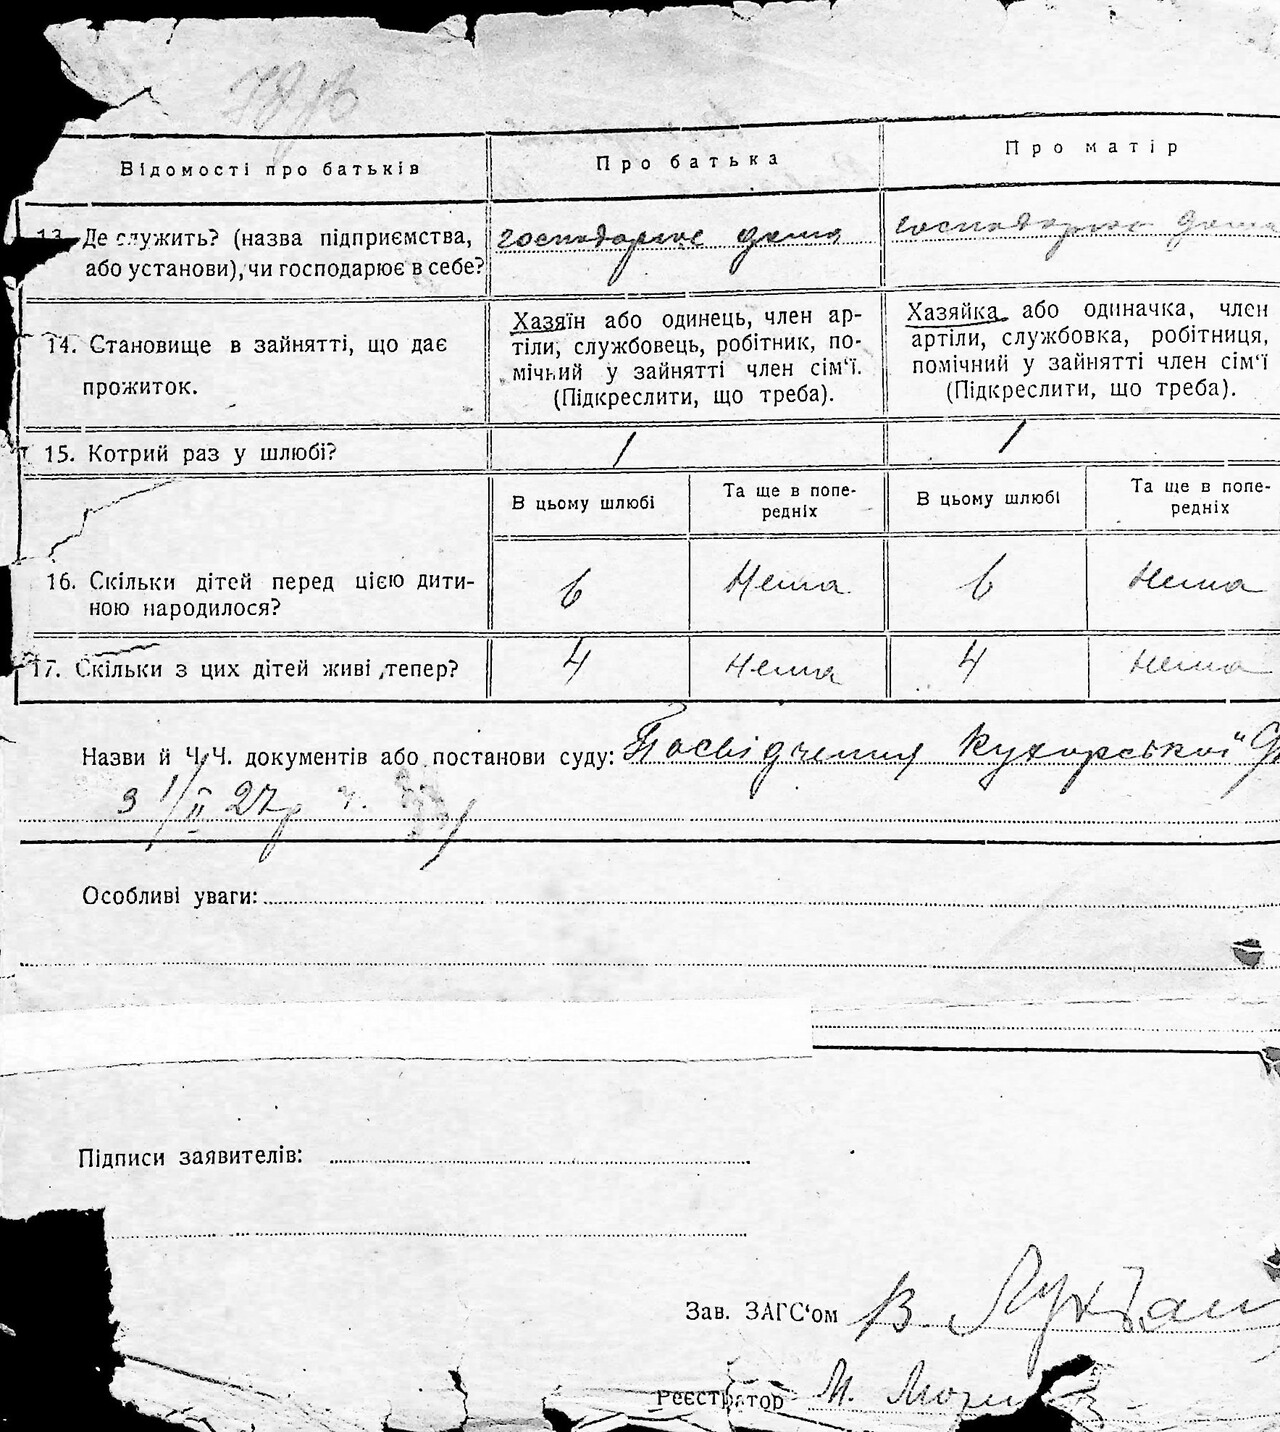 Відомості про батьків
Про батька
Про матір
13. Де служить? (назва підприємства,
або установи), чи господарює в себе?
господарює дома
господарює дома
14. Становище в зайнятті, що дає
прожиток.
Хазяїн або одинець, член ар-
тіли, службовець, робітник, по-
мічний у зайнятті член сім'ї.
(Підкреслити, що треба).
Хазяйка або одиначка, член
артіли, службовка, робітниця,
помічний у зайнятті член сім'ї
(Підкреслити, що треба).
15. Котрий раз у шлюбі?
1
1
В цьому шлюбі
Та ще в попе-
редніх
В цьому шлюбі
Та ще в попе-
редніх
16. Скільки дітей перед цією дити-
ною народилося?
6
Нема
6
Нема
17. Скільки з цих дітей живі тепер?
4
Нема
4
Нема
Назви й Ч.Ч. документів або постанови суду: Посвідчення Кухарської
з 1/II 27р ч.
Особливі уваги:
Підписи заявителів:
Зав. ЗАГС'ом В.
Реєстратор М.